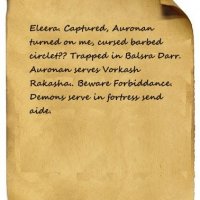 Eleera. Captured, Auronan
turned on me, cursed barbed
circlet?? Trapped in Balsra Darr.
Auronan serves Vorkash
Rakasha. Beware Forbiddance.
Demons serve in fortress send
aide.